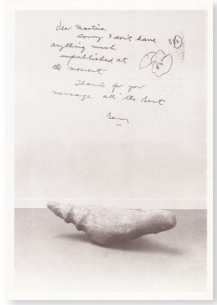 dear martina
sorry I don't have
anything much
unpublished at
the moment
Thanks for your
message all the best
Barry